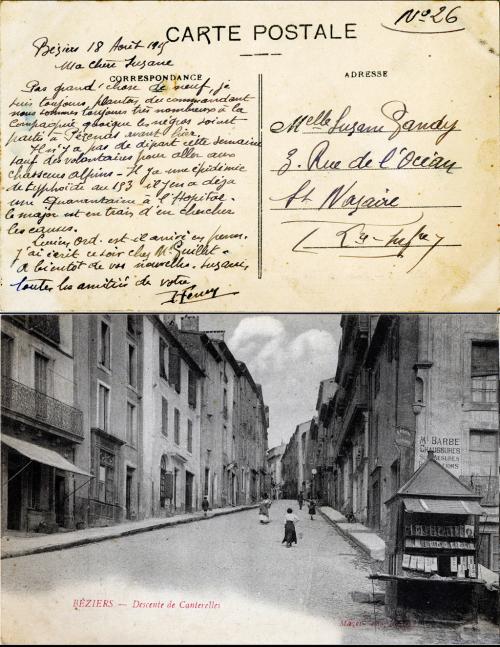 Nº 26
CARTE POSTALE
Béziers 18 Août 191
Ma chère Suzanne
CORRESPONDANCE
ADRESSE
Pas grand'chose de neuf, je
suis toujours planton du commandant
nous sommes toujours très nombreux à la
Compagnie quoique les nègres soient
partis à Pézenas avant hier.
Il n'y a pas de départ cette semaine
sauf des volontaires pour aller aux
chasseurs alpins - Il y a une épidémie
de typhoïde au 183 il y en a déjà
une quarantaine à l'Hôpital.
le major est en train d'en chercher
les causes.
ord. est-il arrivé en perm.
J'ai écrit ce soir chez Mr Guillet.
A bientôt de vos nouvelles. Suzanne,
toutes les amitiés de votre
Melle Suzane Gandy
3. Rue de l'Océan
St Nazaire
Mr BARBE
CHAUSSURES
BÉZIERS — Descente de Canterelles